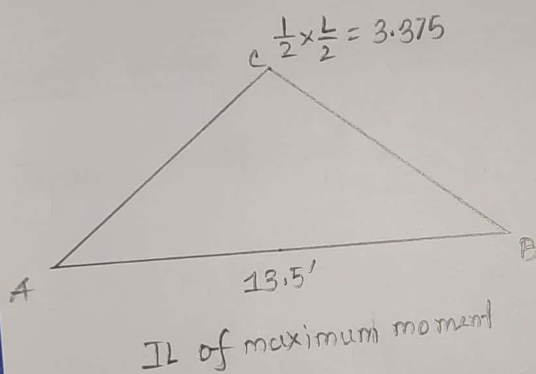 C 1/2 × L/2 = 3.375
A
B
13.5'
IL of maximum moment